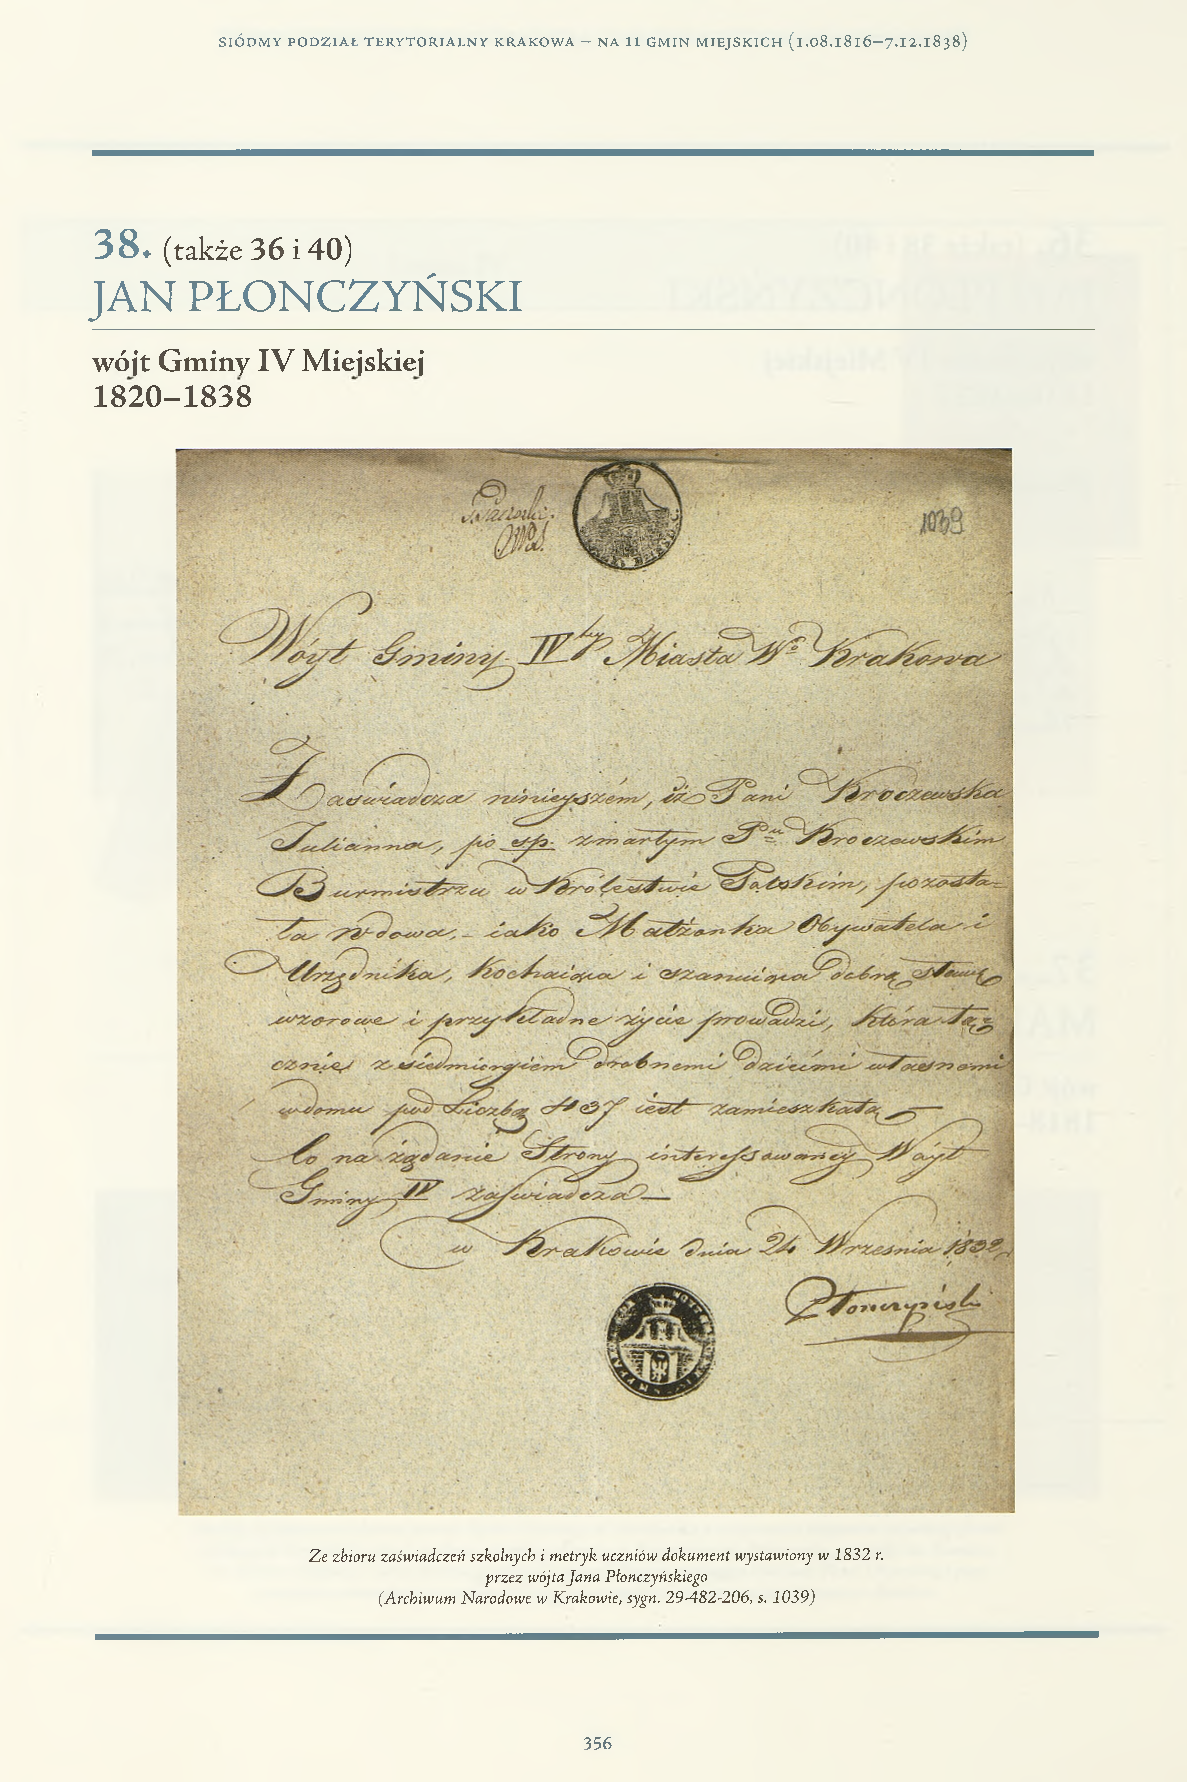 SIÓDMY PODZIAŁ TERYTORIALNY KRAKOWA – NA 11 GMIN MIEJSKICH (1.08.1816–7.12.1838)
38. (także 36 i 40)
JAN PŁONCZYŃSKI
wójt Gminy IV Miejskiej
1820–1838
1039
Wóyt Gminy IVtey Miasta Wo Krakowa
Zaświadcza ninieyszém, iż Pani Kroczewska
Julianna, po śp. zmarłym Pnu Kroczewskim
Burmistrzu w Królestwie Polskim, pozosta=
ła wdowa, – iako Małżonka Obywatela i
Urzędnika, kochaiąca i szanuiąca dobrą sławę
wzorowe i przykładne życie prowadzi, która łą=
cznie z siedmiorgiem drobnemi dziećmi własnemi
w domu pod Liczbą 437 iest zamieszkała –
Co na żądanie Strony interessowaney Wóyt
Gminy IV zaświadcza –
w Krakowie dnia 24 Września 1832
Płonczyński
Ze zbioru zaświadczeń szkolnych i metryk uczniów dokument wystawiony w 1832 r.
przez wójta Jana Płonczyńskiego
(Archiwum Narodowe w Krakowie, sygn. 29-482-206, s. 1039)
356